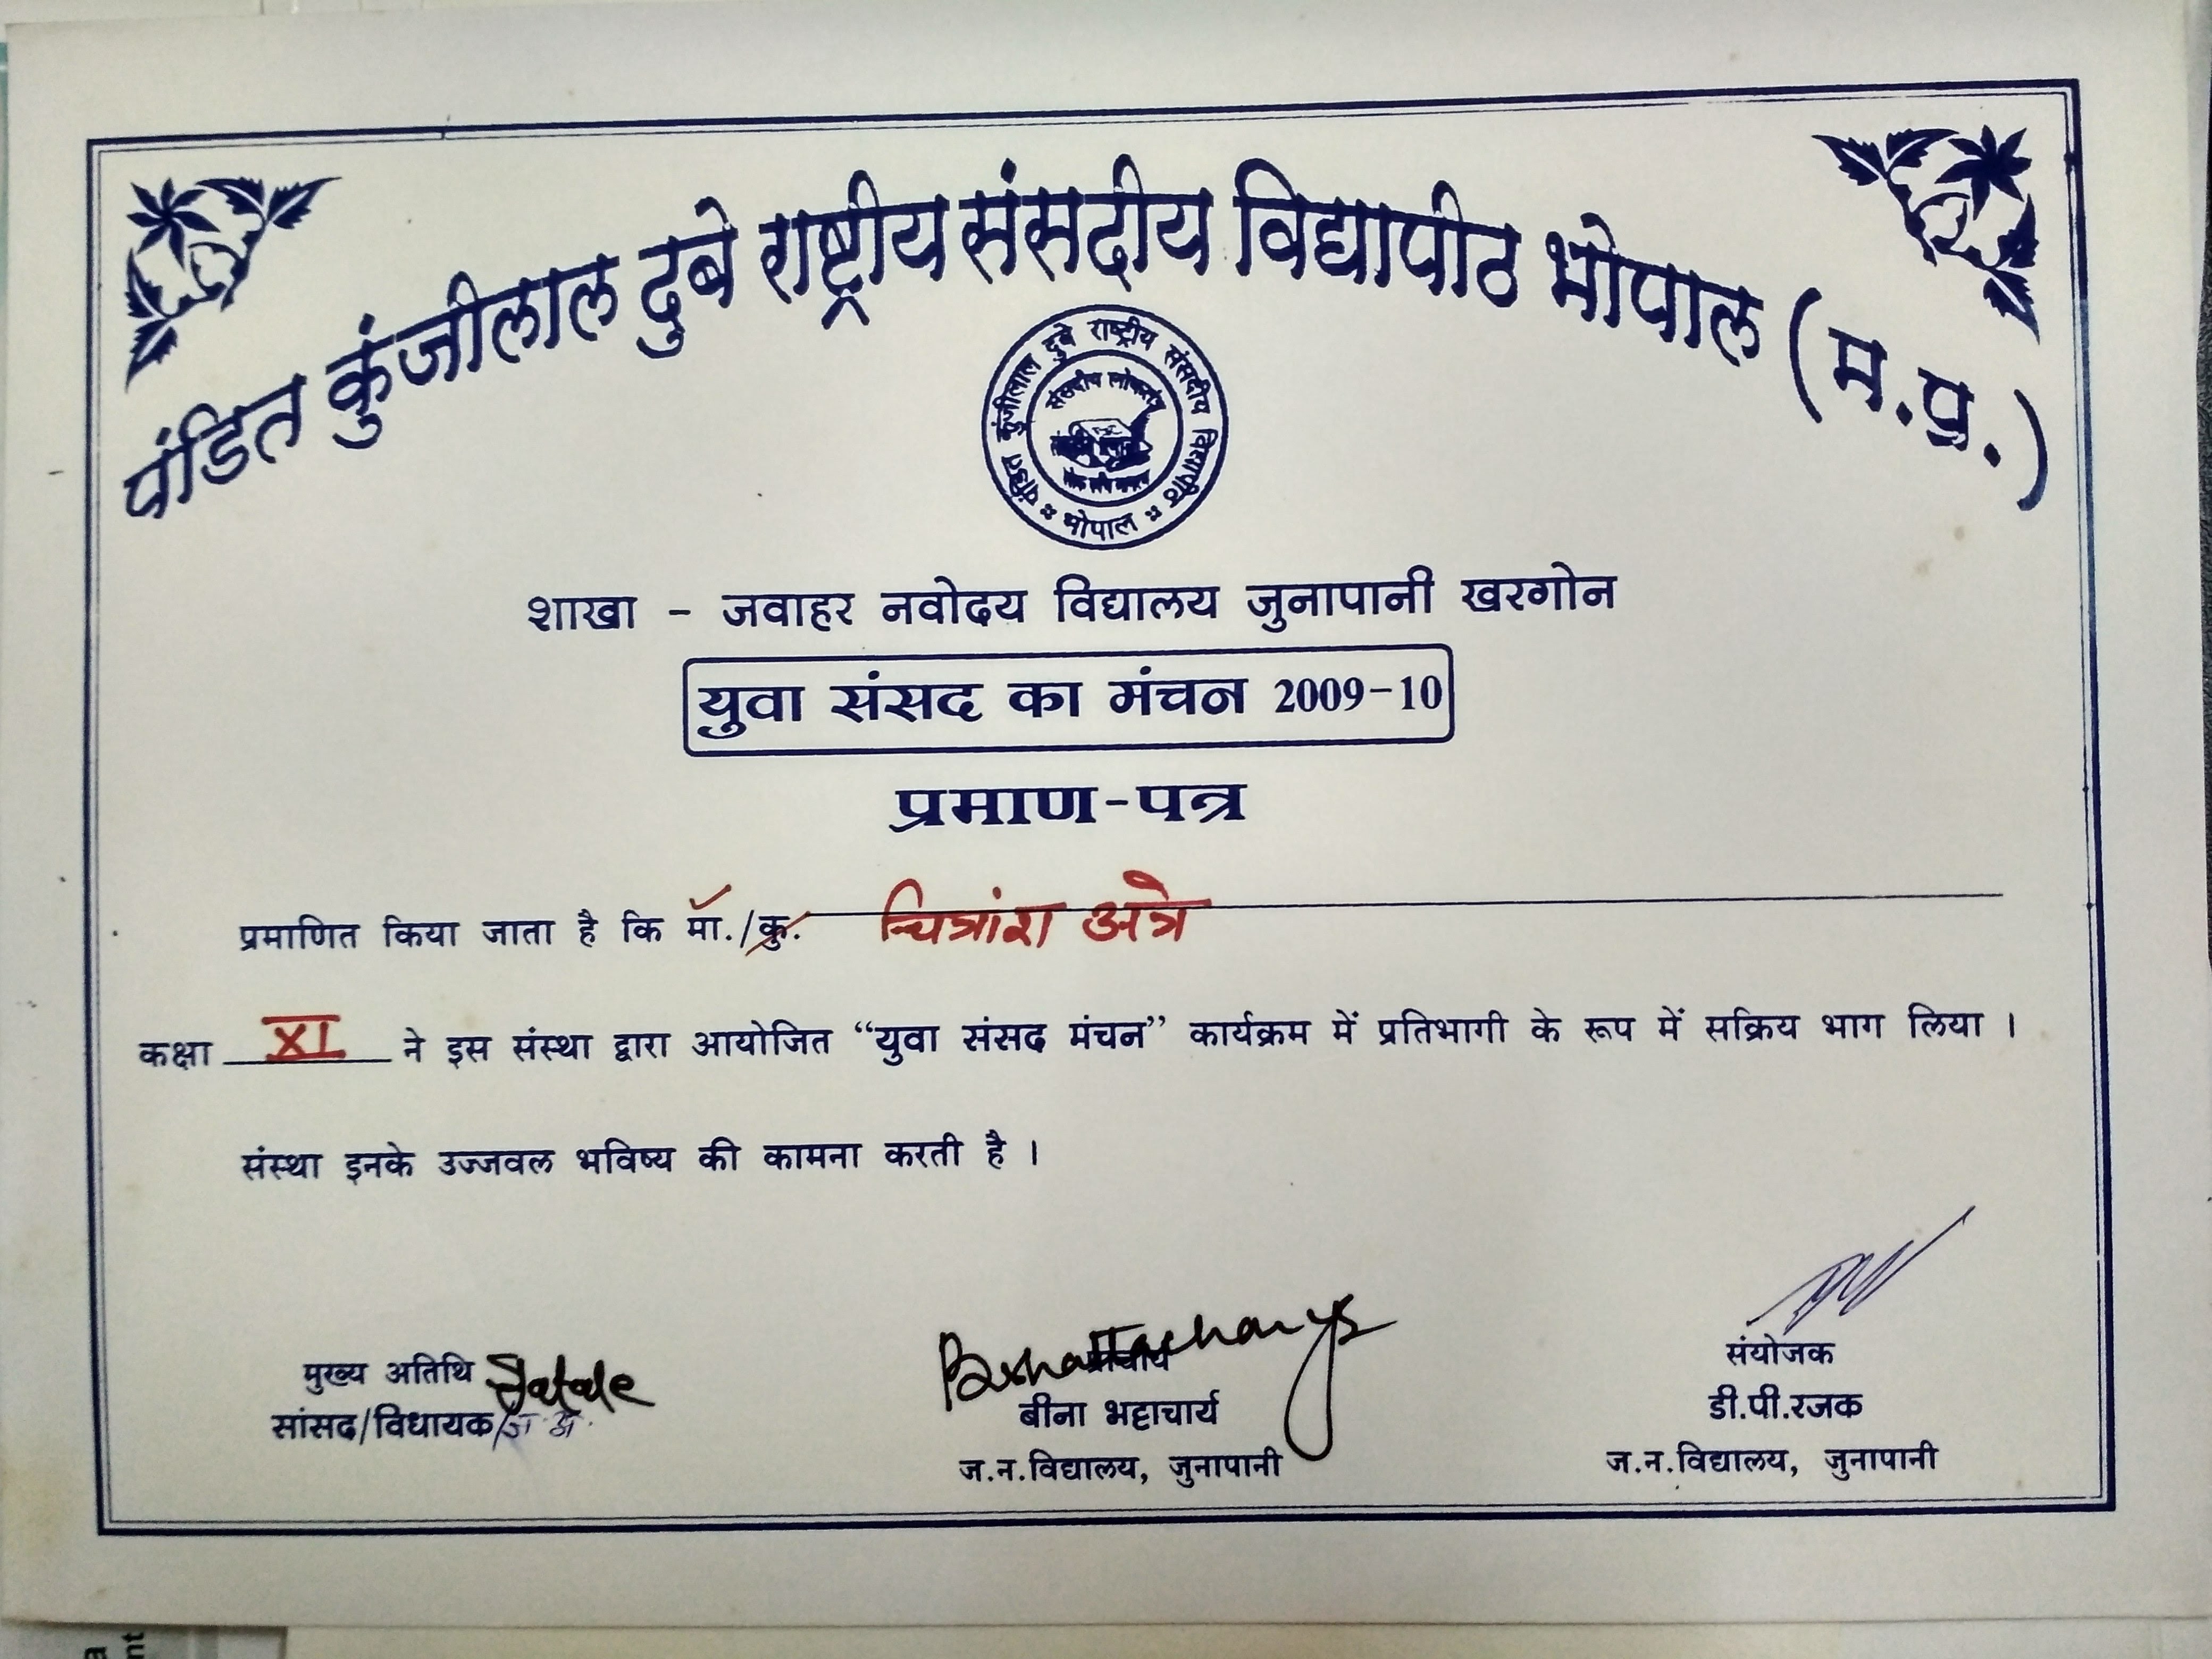 पंडित कुंजीलाल दुबे राष्ट्रीय संसदीय विद्यापीठ भोपाल (म.प्र.)
पंडित कुंजीलाल दुबे राष्ट्रीय संसदीय विद्यापीठ
संसदीय लोकतंत्र
भोपाल
शाखा - जवाहर नवोदय विद्यालय जुनापानी खरगोन
युवा संसद का मंचन 2009-10
प्रमाण-पत्र
प्रमाणित किया जाता है कि मॉ./कु. चित्रांश अत्रे
कक्षा XI ने इस संस्था द्वारा आयोजित “युवा संसद मंचन” कार्यक्रम में प्रतिभागी के रूप में सक्रिय भाग लिया ।
संस्था इनके उज्जवल भविष्य की कामना करती है ।
मुख्य अतिथि
सांसद/विधायक/
Bbhattacharya
प्राचार्य
बीना भट्टाचार्य
ज.न.विद्यालय, जुनापानी
संयोजक
डी.पी.रजक
ज.न.विद्यालय, जुनापानी